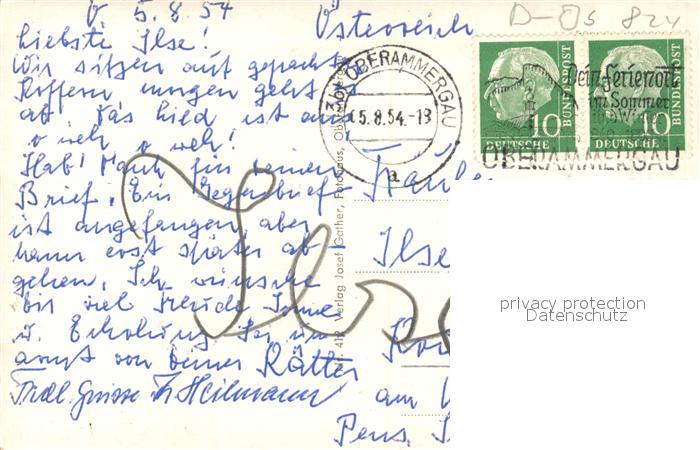 5.8.54
Österreich
D-Ös 824
Liebste Ilse!
Wir sitzen auf gepackten
Koffern morgen geht es
ab. Das Lied ist aus
o weh, o weh!
Hab' Dank für deinen
Brief. Ein Gegenbrief
ist angefangen, aber
kann erst später ab-
gehen. Ich wünsche
dir viel Freude, Sonne
u. Erholung. Sei um-
armt von deiner Kätte
Frdl. Grüsse Fr. Heilmann
Fräule
Ilse
am
Pens.
OBERAMMERGAU
5.8.54.-18
a
10 DEUTSCHE BUNDESPOST
10 DEUTSCHE BUNDESPOST
Dein Ferienort
im Sommer
OBERAMMERGAU
412 Verlag Josef Gather, Fotohaus,
privacy protection
Datenschutz